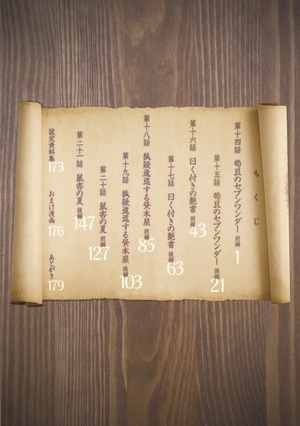 もくじ
第十四話 苟且のセブンワンダー 前編 1
第十五話 苟且のセブンワンダー 後編 21
第十六話 曰く付きの艶書 前編 43
第十七話 曰く付きの艶書 後編 63
第十八話 狐疑逡巡する貸本屋 前編 85
第十九話 狐疑逡巡する貸本屋 後編 103
第二十話 鼠害の夏 前編 127
第二十一話 鼠害の夏 後編 147
設定資料集 173
おまけ漫画 176
あとがき 179